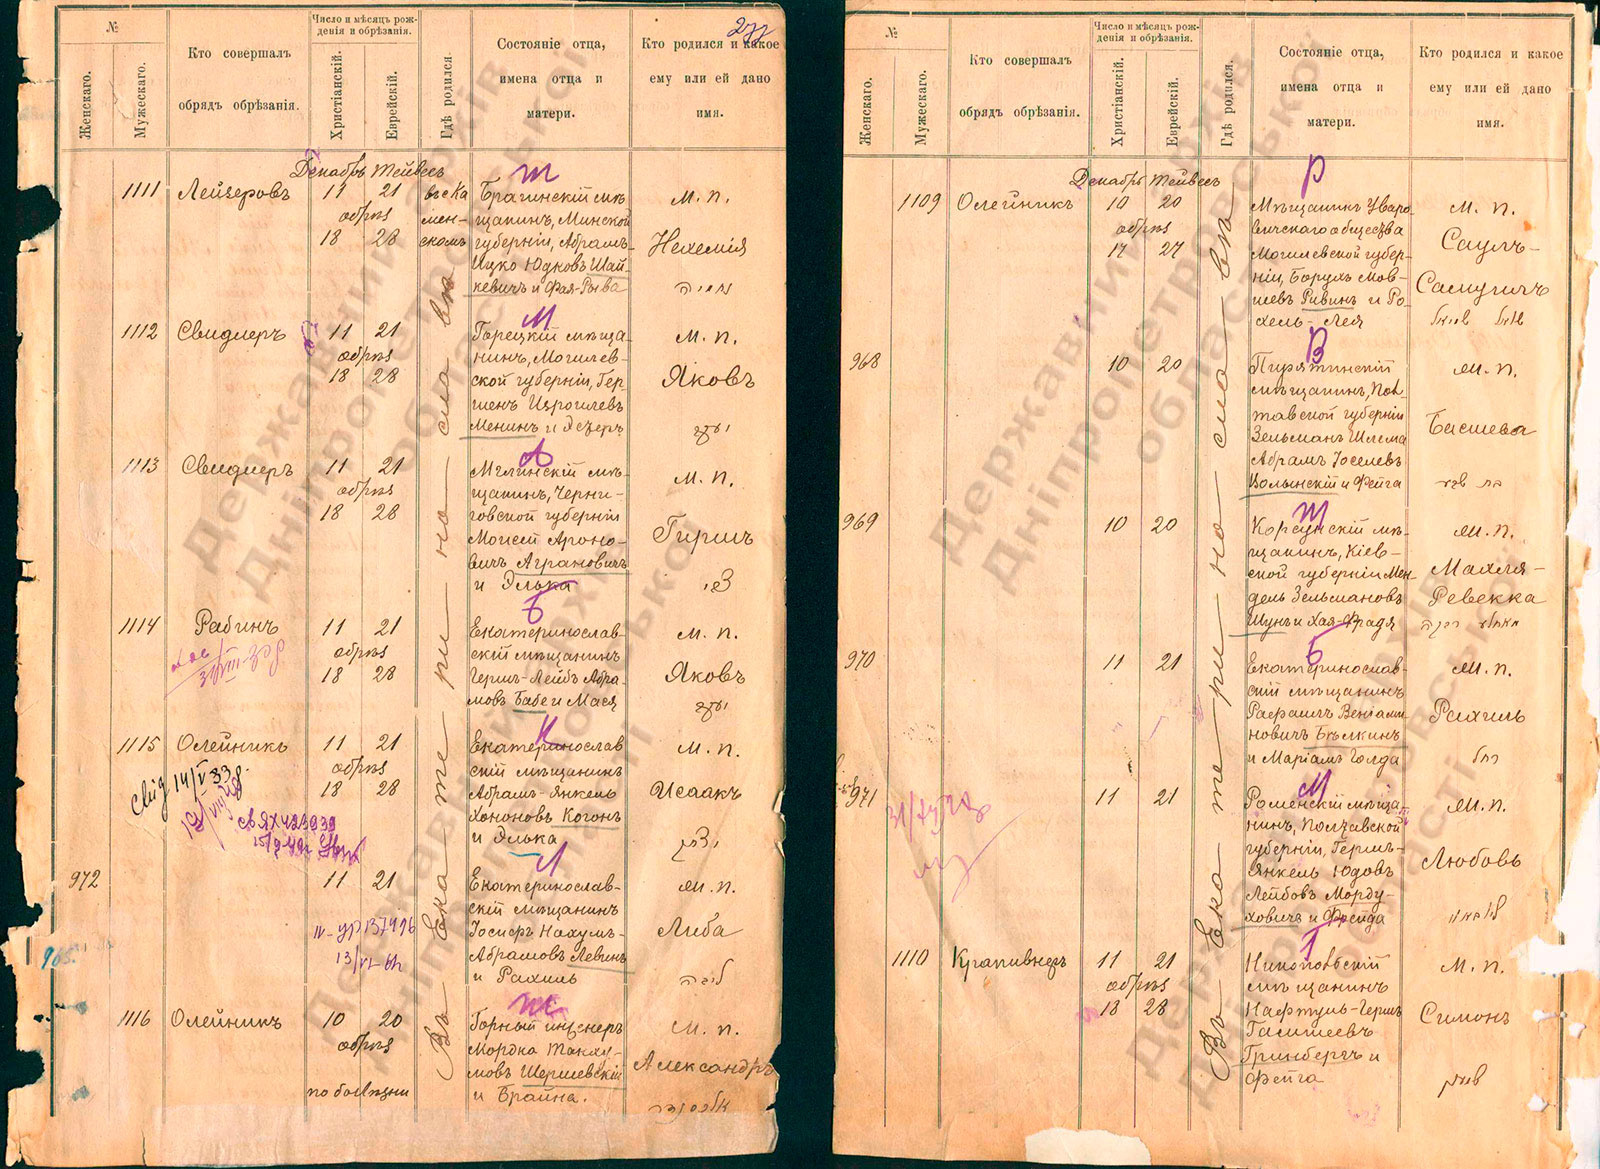 277
№
Женскаго.
Мужескаго.
Кто совершалъ
обрядъ обрѣзанія.
Число и мѣсяцъ рож-
денія и обрѣзанія.
Христіанскій.
Еврейскій.
Гдѣ родился.
Состояніе отца,
имена отца и
матери.
Кто родился и какое
ему или ей дано
имя.
Декабрь Тейвесъ
Въ Екатеринославѣ
Ш
1111 Лейзеровъ 11 21
обрѣз
18 28
въ с Ка
мен-
скомъ
Брагинскій мѣ
щанинъ, Минской
губерніи, Абрамъ-
Ицко Юдковъ Шай-
кевичъ и Фая-Рыва
м. п.
Нехемія
נחמיה
М
1112 Свидлеръ 11 21
обрѣз
18 28
Горецкій мѣща
нинъ, Могилев-
ской губерніи, Гер
шенъ Изроилевъ
Менинъ и Эстеръ
м. п.
Яковъ
יעקב
А
1113 Свидлеръ 11 21
обрѣз
18 28
Мглинскій мѣ-
щанинъ, Черни-
говской губерніи
Моисей Ароно-
вичъ Аграновичъ
и Элька
м. п.
Гиршъ
צבי
Б
1114 Рабинъ 11 21
обрѣз
18 28
Екатеринослав-
скій мѣщанинъ
Гершъ-Лейбъ Абра-
мовъ Бабе и Мася
м. п.
Яковъ
יעקב
К
1115 Олейникъ 11 21
обрѣз
18 28
Свид 14/V 33
Екатеринослав
скій мѣщанинъ
Абрамъ-Янкель
Хононовъ Когонъ
и Элька
м. п.
Исаакъ
יצחק
Л
972 11 21
Екатеринослав-
скій мѣщанинъ
Іосифъ Нахумъ-
Абрамовъ Левинъ
и Рахиль
м. п.
Либа
ליבה
965.
Ш
1116 Олейникъ 10 20
обрѣз
по болѣзни
Горный инженеръ
Мордка Танху-
мовъ Шершевскій
и Брайна.
м. п.
Александръ
אלכסנדר
№
Женскаго.
Мужескаго.
Кто совершалъ
обрядъ обрѣзанія.
Число и мѣсяцъ рож-
денія и обрѣзанія.
Христіанскій.
Еврейскій.
Гдѣ родился.
Состояніе отца,
имена отца и
матери.
Кто родился и какое
ему или ей дано
имя.
Декабрь Тейвесъ
Въ Екатеринославѣ
Р
1109 Олейникъ 10 20
обрѣз
17 27
Мѣщанинъ Уваро-
вичскаго общества
Могилевской губер-
ніи, Борухъ Мов-
шевъ Ривинъ и Ро-
хель-Лея
м. п.
Саулъ-
Самуилъ
שאול שמואל
В
968 10 20
Пирятинскій
мѣщанинъ, Пол-
тавской губерніи
Зельманъ Шлема
Абрамъ Іоселевъ
Волынскій и Фейга
м. п.
Басшева
בת שבע
Ш
969 10 20
Корсунскій мѣ-
щанинъ, Кіев-
ской губерніи Мен-
дель Зельмановъ
Шунъ и Хая-Фрадя
м. п.
Махля-
Ревекка
מחלה רבקה
Б
970 11 21
Екатеринослав-
скій мѣщанинъ
Рафаилъ Веніами
новичъ Бѣлкинъ
и Маріамъ Голда
м. п.
Рахиль
רחל
М
971 11 21
Роменскій мѣща
нинъ, Полтавской
губерніи, Гершъ-
Янкель Юдовъ
Лейбовъ Морду-
ховичъ и Фрейда
м. п.
Любовь
Г
1110 Крапивнеръ 11 21
обрѣз
18 28
Никопольскій
мѣщанинъ
Нафтуль-Гершъ
Гринбергъ и
Фейга
м. п.
Симонъ
שמעון
Державний архів
Дніпропетровської
області